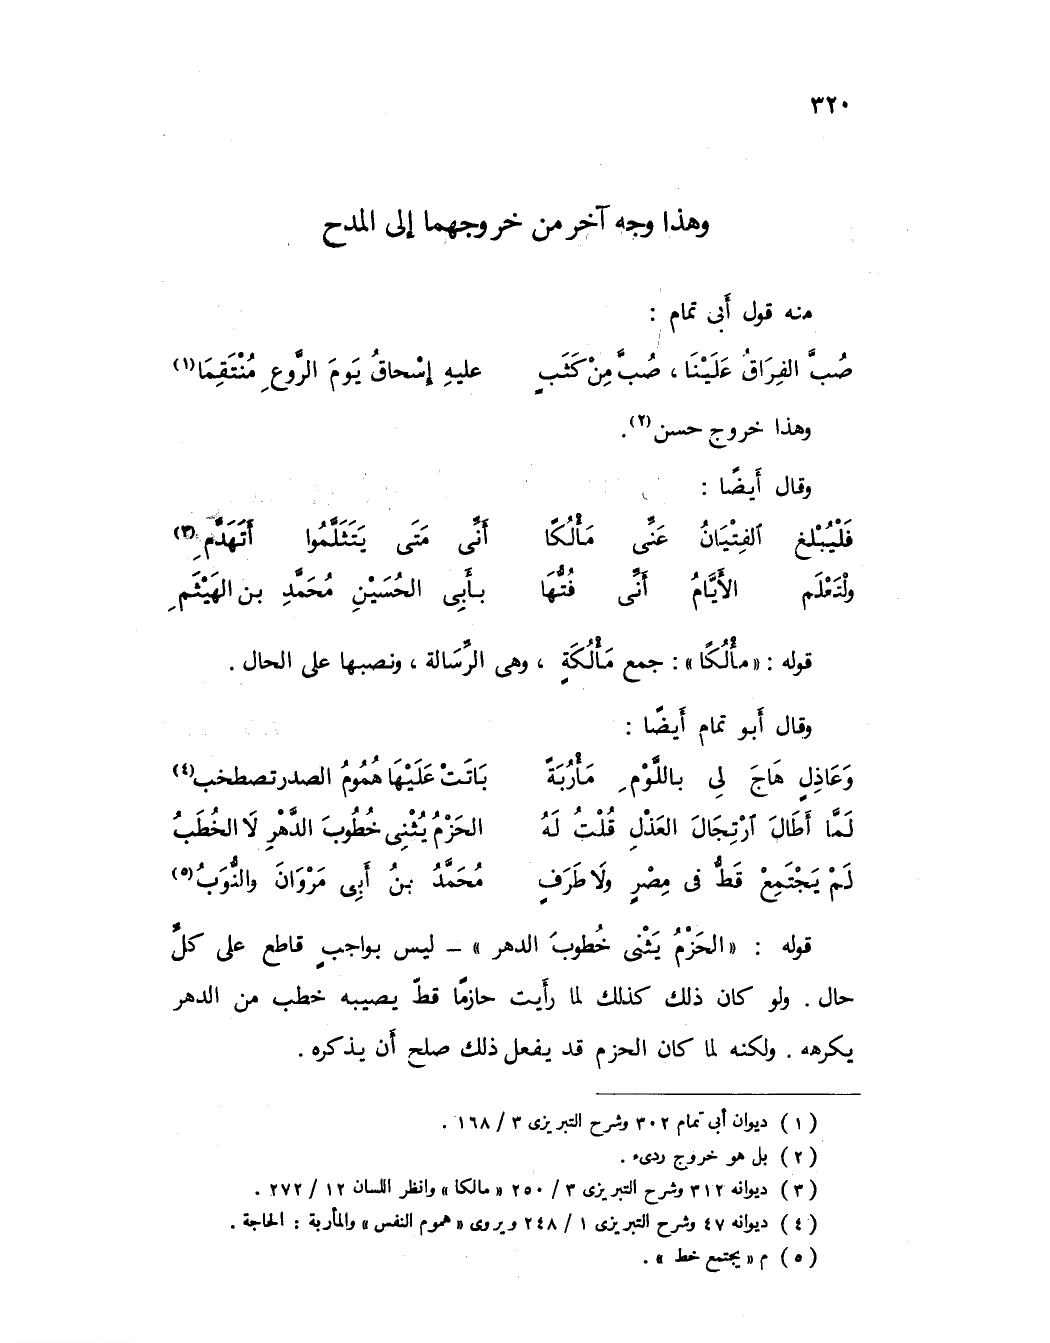 ٣٢٠
وهذا وجه آخر من خروجهما إلى المدح
منه قول أبى تمام :
صُبَّ الفِرَاقُ عَلَيْنَا ، صُبَّ مِنْ كَثَبٍ عليهِ إسْحاقُ يَومَ الرَّوعِ مُنْتَقِمَا(١)
وهذا خروج حسن(٢).
وقال أَيضًا :
فَلْيُبْلغِ ٱلفِتْيَانُ عَنَّى مَأْلُكًا أَنَّى مَتَى يَتَثَلَّمُوا أَتَهَدَّمِ(٣)
ولْتَعْلَم الأَيَّامُ أَنَّى فُتُّهَا بِأَبِى الحُسَيْنِ مُحَمَّدِ بن الهَيْثَمِ
قوله : « مأْلُكًا » : جمع مَأْلُكَةٍ ، وهى الرِّسَالة ، ونصبها على الحال .
وقال أَبو تمام أَيضًا :
وَعَاذِلٍ هَاجَ لِى باللَّوْمِ مَأْرُبَةً بَاتَتْ عَلَيْهَا هُمُومُ الصدر تصطخب(٤)
لَمَّا أَطَالَ ٱرْتِجَالَ العَذْلِ قُلْتُ لَهُ الحَزْمُ يُثْنِى خُطُوبَ الدَّهْرِ لَا الخُطَبُ
لَمْ يَجْتَمِعْ قَطُّ فى مِصْرٍ ولَا طَرَفٍ مُحَمَّدُ بنُ أَبِى مَرْوَانَ والنُّوَبُ(٥)
قوله : « الحَزْمُ يَثْنى خُطوبَ الدهر » – ليس بواجبٍ قاطع على كلِّ
حال . ولو كان ذلك كذلك لما رأَيت حازمًا قطّ يصيبه خطب من الدهر
يكرهه . ولكنه لما كان الحزم قد يفعل ذلك صلح أَن يذكره .
( ١ ) ديوان أبى تمام ٣٠٢ وشرح التبريزى ٣ / ١٦٨ .
( ٢ ) بل هو خروج ردىء .
( ٣ ) ديوانه ٣١٢ وشرح التبريزى ٣ / ٢٥٠ « مالكا » وانظر اللسان ١٢ / ٢٧٢ .
( ٤ ) ديوانه ٤٧ وشرح التبريزى ١ / ٢٤٨ ويروى « هموم النفس » والمأربة : الحاجة .
( ٥ ) م « يجتمع خط » .